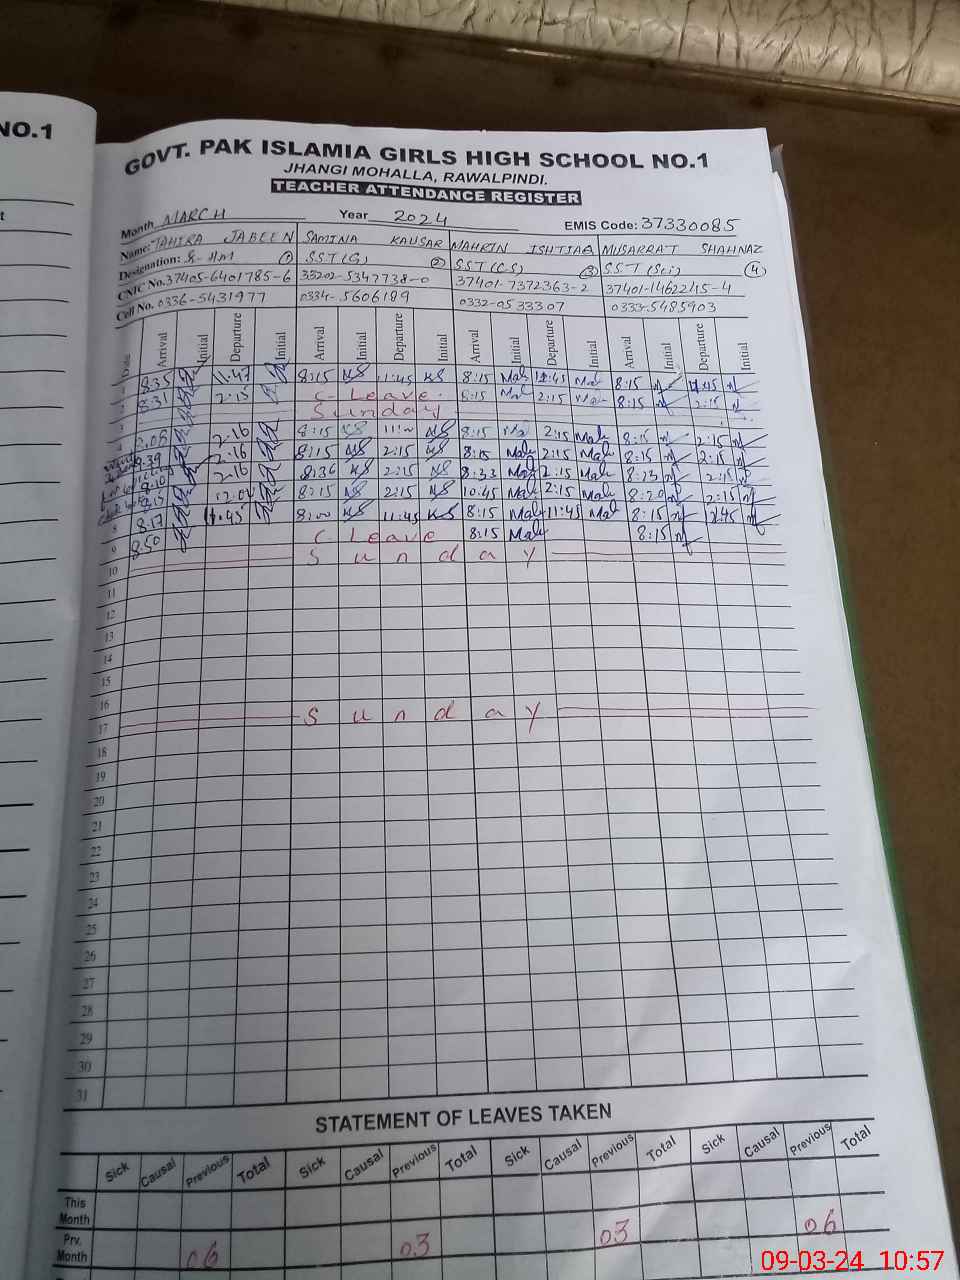 NO.1
GOVT. PAK ISLAMIA GIRLS HIGH SCHOOL NO.1
JHANGI MOHALLA, RAWALPINDI.
TEACHER ATTENDANCE REGISTER
Month MARCH Year 2024 EMIS Code: 37330085
Name: TAHIRA JABEEN SAMINA KAUSAR MAHRIN ISHTIAQ MUSARRAT SHAHNAZ
Designation: S-HM 1 SST(G) 2 SST(CS) 3 SST(Sci) 4
CNIC No. 37405-6401785-6 35202-5347738-0 37401-7372363-2 37401-1462245-4
Cell No. 0336-5431977 0334-5606189 0332-0533307 0333-5485903
Date Arrival Initial Departure Initial Arrival Initial Departure Initial Arrival Initial Departure Initial Arrival Initial Departure Initial
1 8:35 11:47 8:15 KS 11:45 KS 8:15 Mah 12:45 Mah 8:15 12:45
2 8:31 2:15 C-Leave. 8:15 Mah 2:15 8:15 2:15
Sunday
4 2:16 8:15 KS KS 8:15 2:15 Mah 8:15 2:15
2:16 8:15 KS 2:15 KS 8:15 Mah 2:15 Mah 8:15 2:15
2:16 8:36 KS 2:15 KS 8:33 Mah 2:15 Mah 8:23 2:15
8:15 KS 2:15 KS 10:45 Mah 2:15 Mah 8:20 2:15
8 8:17 11:45 8:00 KS 11:45 KS 8:15 Mah 11:45 Mah 8:15 12:45
9 8:50 C Leave 8:15 Mah 8:15
10 Sunday
11
12
13
14
15
16
17 Sunday
18
19
20
21
22
23
24
25
26
27
28
29
30
31
STATEMENT OF LEAVES TAKEN
Sick Causal Previous Total Sick Causal Previous Total Sick Causal Previous Total Sick Causal Previous Total
This Month
Prv. Month 06 03 03 06
09-03-24 10:57